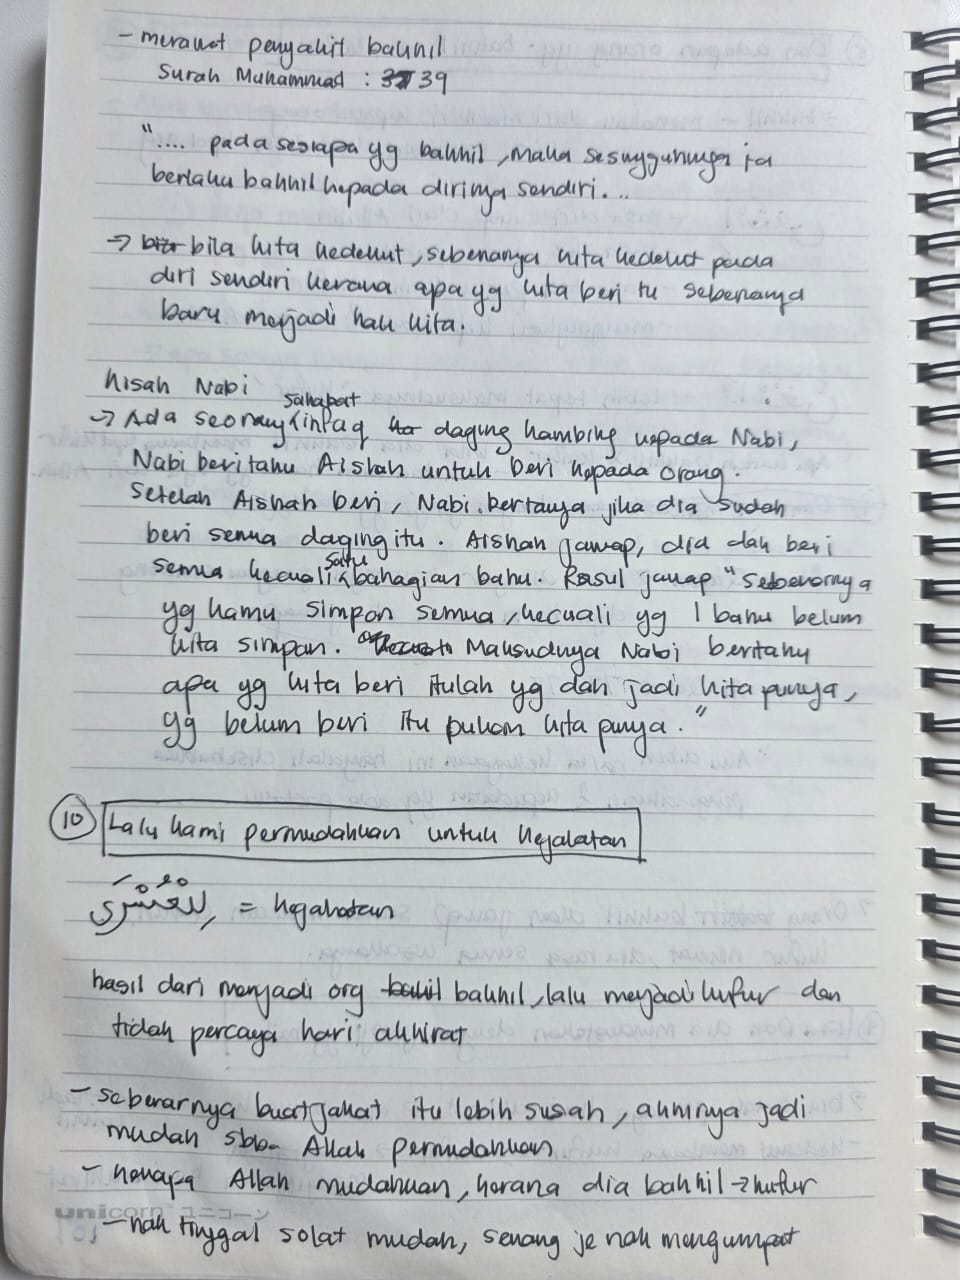 - merawat penyakit bakhil
Surah Muhammad : 39
".... pada sesiapa yg bakhil, maka sesungguhnya ia
berlaku bakhil kepada dirinya sendiri...
→ bila kita kedekut, sebenarnya kita kedekut pada
diri sendiri kerana apa yg kita beri tu sebenarnya
baru menjadi hak kita.
kisah Nabi
→ Ada seorang sahabat infaq daging kambing kepada Nabi,
Nabi beritahu Aishah untuk beri kepada orang.
Setelah Aishah beri, Nabi bertanya jika dia sudah
beri semua daging itu. Aishah jawap, dia dah beri
semua kecuali satu bahagian bahu. Rasul jawap "sebenarnya
yg kamu simpan semua, kecuali yg 1 bahu belum
kita simpan. Maksudnya Nabi beritahu
apa yg kita beri itulah yg dah jadi kita punya,
yg belum beri itu bukan kita punya."
10 Lalu kami permudahkan untuk kejahatan
للعسرى = kejahatan
hasil dari menjadi org bakhil, lalu menjadi kufur dan
tidak percaya hari akhirat
- sebenarnya buat jahat itu lebih susah, akhirnya jadi
mudah sbb Allah permudahkan
- kenapa Allah mudahkan, kerana dia bakhil → kufur
unicorn ユニコーン
- nak tinggal solat mudah, senang je nak mengumpat